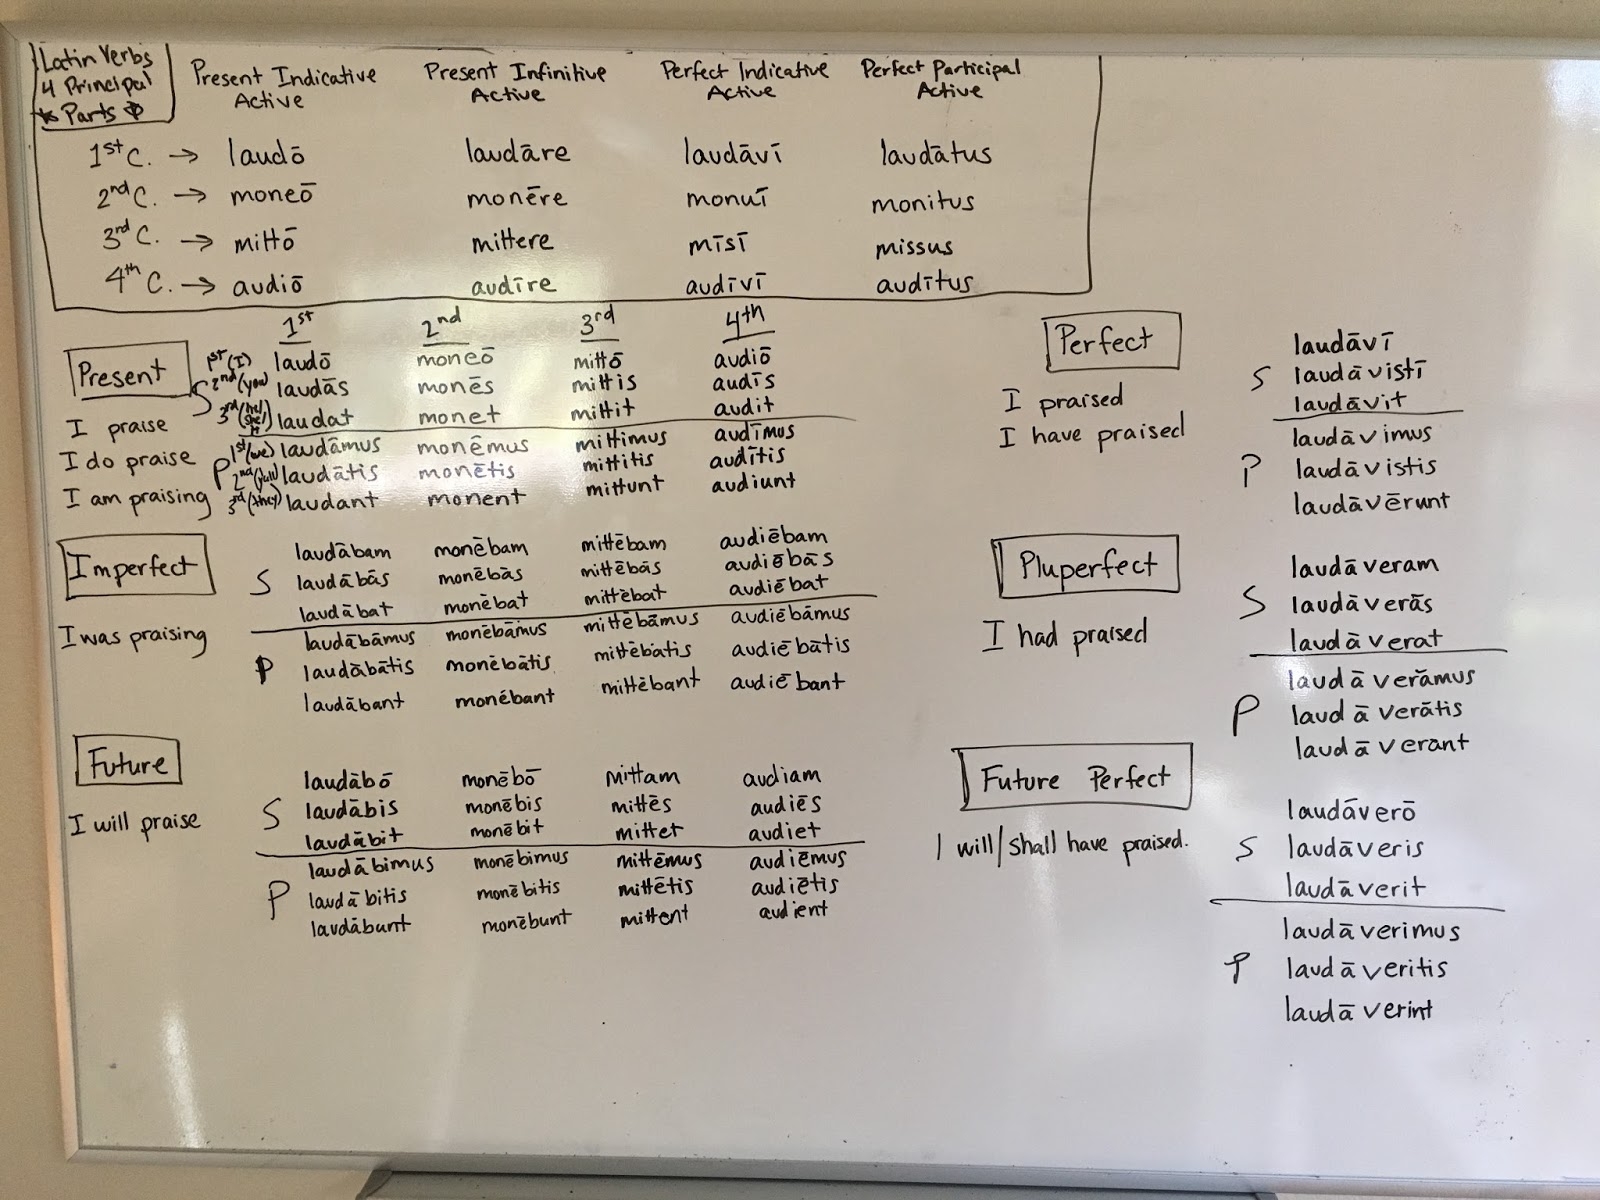 Latin Verbs
4 Principal
Parts
Present Indicative Active
Present Infinitive Active
Perfect Indicative Active
Perfect Participal Active
1st C. → laudō laudāre laudāvī laudātus
2nd C. → moneō monēre monuī monitus
3rd C. → mittō mittere mīsī missus
4th C. → audiō audīre audīvī audītus
1st 2nd 3rd 4th
Present
I praise
I do praise
I am praising
S
1st (I) laudō moneō mittō audiō
2nd (you) laudās monēs mittis audīs
3rd (he/she/it) laudat monet mittit audit
P
1st (we) laudāmus monēmus mittimus audīmus
2nd (yall) laudātis monētis mittitis audītis
3rd (they) laudant monent mittunt audiunt
Imperfect
I was praising
S
laudābam monēbam mittēbam audiēbam
laudābās monēbās mittēbās audiēbās
laudābat monēbat mittēbat audiēbat
P
laudābāmus monēbāmus mittēbāmus audiēbāmus
laudābātis monēbātis mittēbātis audiēbātis
laudābant monēbant mittēbant audiēbant
Future
I will praise
S
laudābō monēbō mittam audiam
laudābis monēbis mittēs audiēs
laudābit monēbit mittet audiet
P
laudābimus monēbimus mittēmus audiēmus
laudābitis monēbitis mittētis audiētis
laudābunt monēbunt mittent audient
Perfect
I praised
I have praised
S
laudāvī
laudāvistī
laudāvit
P
laudāvimus
laudāvistis
laudāvērunt
Pluperfect
I had praised
S
laudāveram
laudāverās
laudāverat
P
laudāverāmus
laudāverātis
laudāverant
Future Perfect
I will/shall have praised.
S
laudāverō
laudāveris
laudāverit
P
laudāverimus
laudāveritis
laudāverint